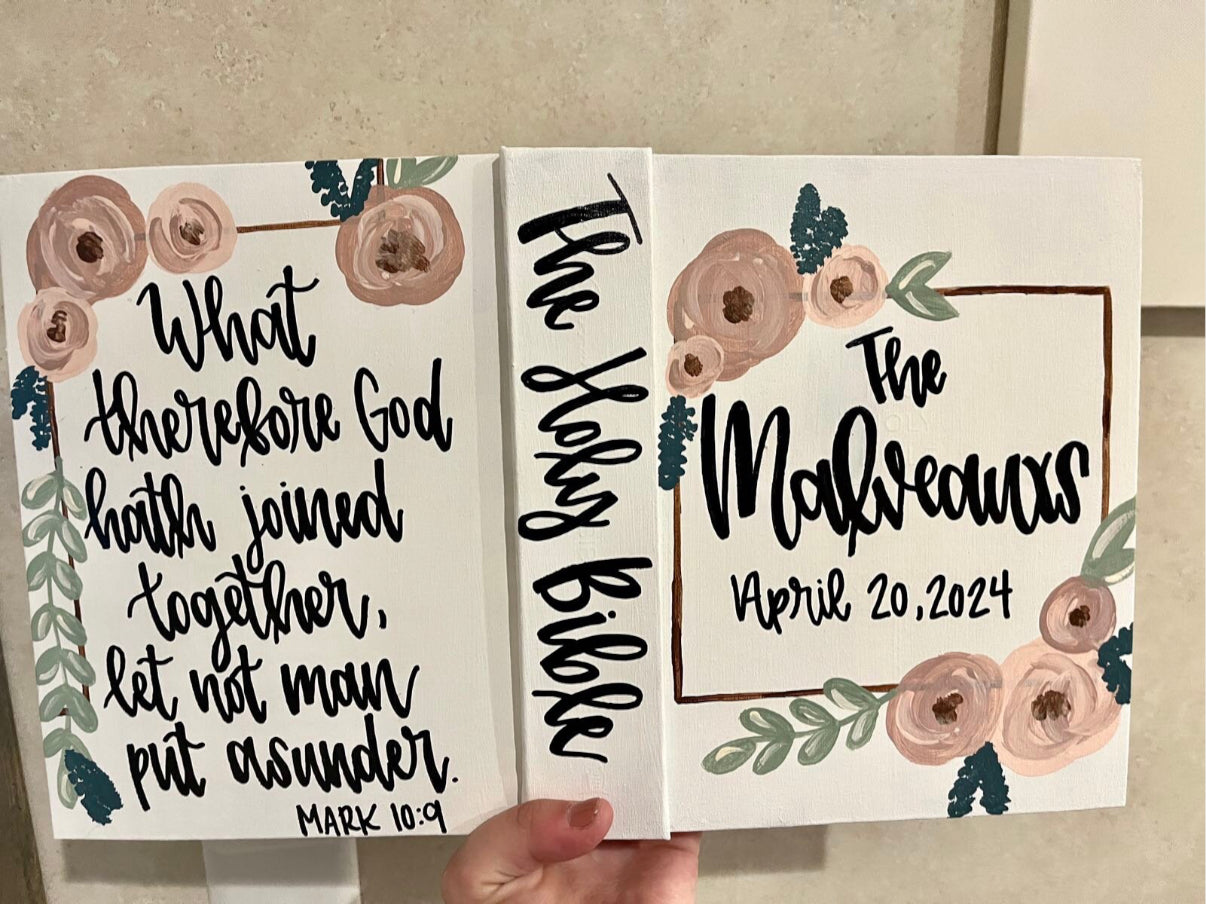 What
therefore God
hath joined
together,
let not man
put asunder.
MARK 10:9
The Holy Bible
The
Malveauxs
April 20, 2024